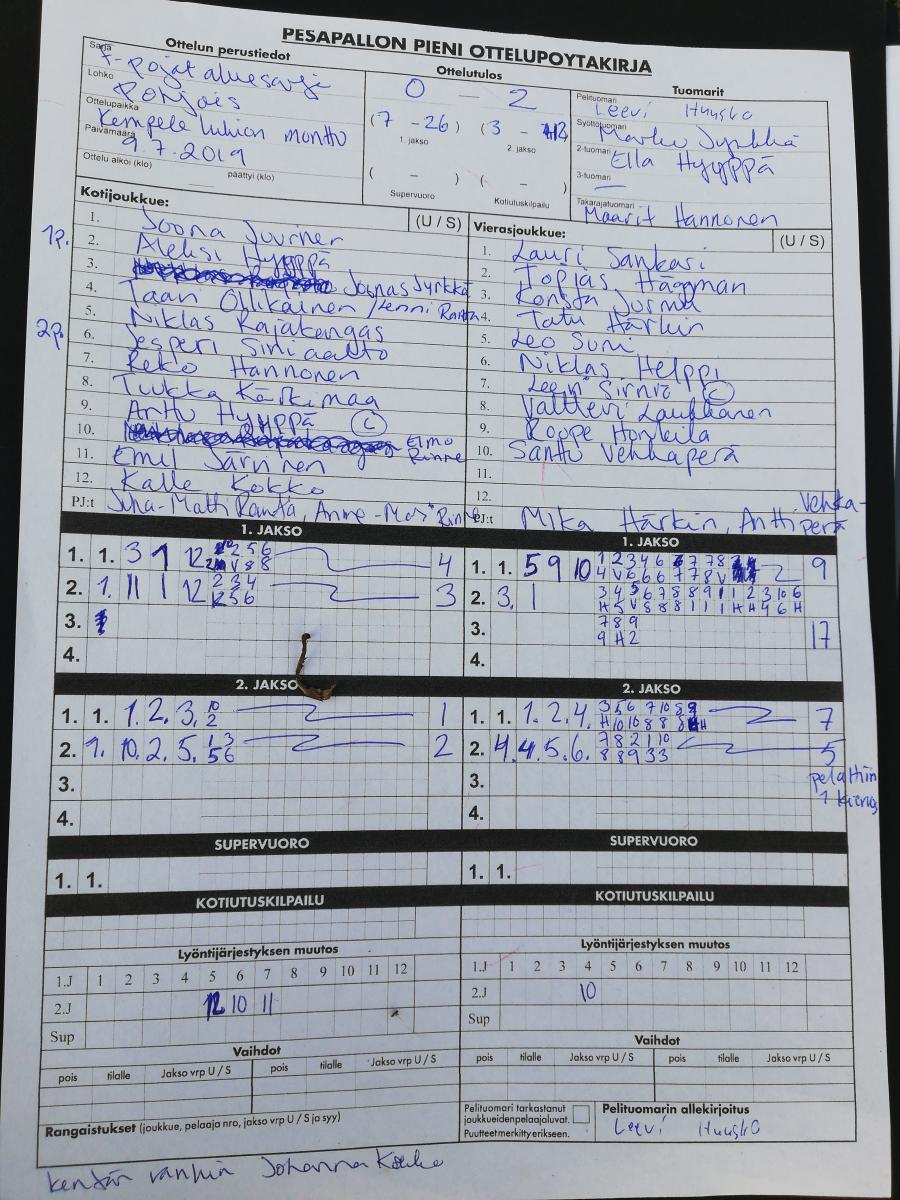 PESAPALLON PIENI OTTELUPOYTAKIRJA
Ottelun perustiedot
Sarja F-pojat aluesarja
Lohko Pohjois
Ottelupaikka Kempele lukion monttu
Päivämäärä 9.7.2019
Ottelu alkoi (klo) päättyi (klo)
Ottelutulos
0 — 2
(7 - 26) (3 - 12)
1. jakso 2. jakso
( - ) ( - )
Supervuoro Kotiutuskilpailu
Tuomarit
Pelituomari Leevi Huusko
Syöttötuomari Marko Jyrkkä
2-tuomari Ella Hyyppä
3-tuomari —
Takarajatuomari Maarit Hannonen
Kotijoukkue: (U / S)
1. Joona Juurner
1p. 2. Aleksi Hyyppä
3. Joonas Jyrkkä
4. Taavi Ollikainen / Henni Ranta
5. Niklas Rajakangas
2p. 6. Jesperi Siniaalto
7. Reko Hannonen
8. Tuukka Kärkimaa
9. Anttu Hyyppä C
10. Elmo Rinne
11. Emil Järvinen
12. Kalle Kokko
PJ:t Juha-Matti Ranta, Anne-Mari Rinne
Vierasjoukkue: (U / S)
1. Lauri Sankari
2. Topias Häggman
3. Konsta Jurmu
4. Tatu Härkin
5. Leo Suni
6. Niklas Helppi
7. Leevi Sirniö C
8. Valtteri Laukkanen
9. Roope Honkila
10. Santtu Vehkaperä
11.
12.
PJ:t Mika Härkin, Antti Vehkaperä
1. JAKSO
1. 1. 3 1 12 4
2. 1. 11 1 12 2 3 4 3
3.
4.
1. JAKSO
1. 1. 5 9 10 9
2. 3. 1
3. 7 8 9 17
9 H 2
4.
2. JAKSO
1. 1. 1. 2. 3. 10 1
2
2. 1. 10. 2. 5. 1 3 2
5 6
3.
4.
2. JAKSO
1. 1. 1. 2. 4. 7
2. 4. 4. 5. 6. 7 8 2 1 10 5
8 8 9 3 3
pelattiin
3. 1 kierros
4.
SUPERVUORO
1. 1.
SUPERVUORO
1. 1.
KOTIUTUSKILPAILU
KOTIUTUSKILPAILU
Lyöntijärjestyksen muutos
1.J 1 2 3 4 5 6 7 8 9 10 11 12
2.J 12 10 11
Sup
Lyöntijärjestyksen muutos
1.J 1 2 3 4 5 6 7 8 9 10 11 12
2.J 10
Sup
Vaihdot
pois tilalle Jakso vrp U / S pois tilalle Jakso vrp U / S
Vaihdot
pois tilalle Jakso vrp U / S pois tilalle Jakso vrp U / S
Rangaistukset (joukkue, pelaaja nro, jakso vrp U / S ja syy)
Pelituomari tarkastanut
joukkueiden pelaajaluvat.
Puutteet merkitty erikseen.
Pelituomarin allekirjoitus
Leevi Huusko
kentän vanhin Johanna